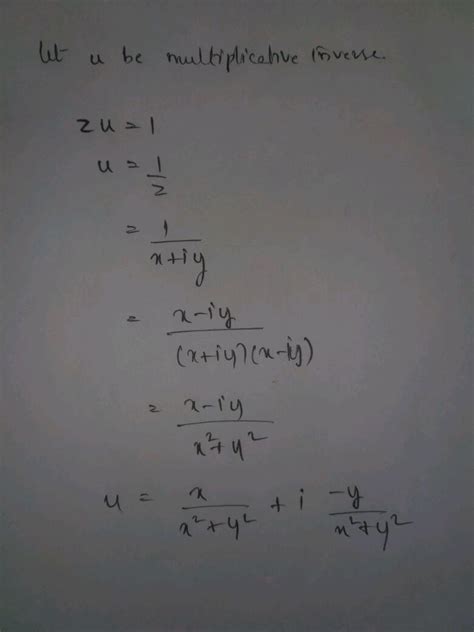 let u be multiplicative inverse.
zu = 1
u = 1/z
= 1/(x+iy)
= (x-iy)/((x+iy)(x-iy))
= (x-iy)/(x²+y²)
u = x/(x²+y²) + i -y/(x²+y²)